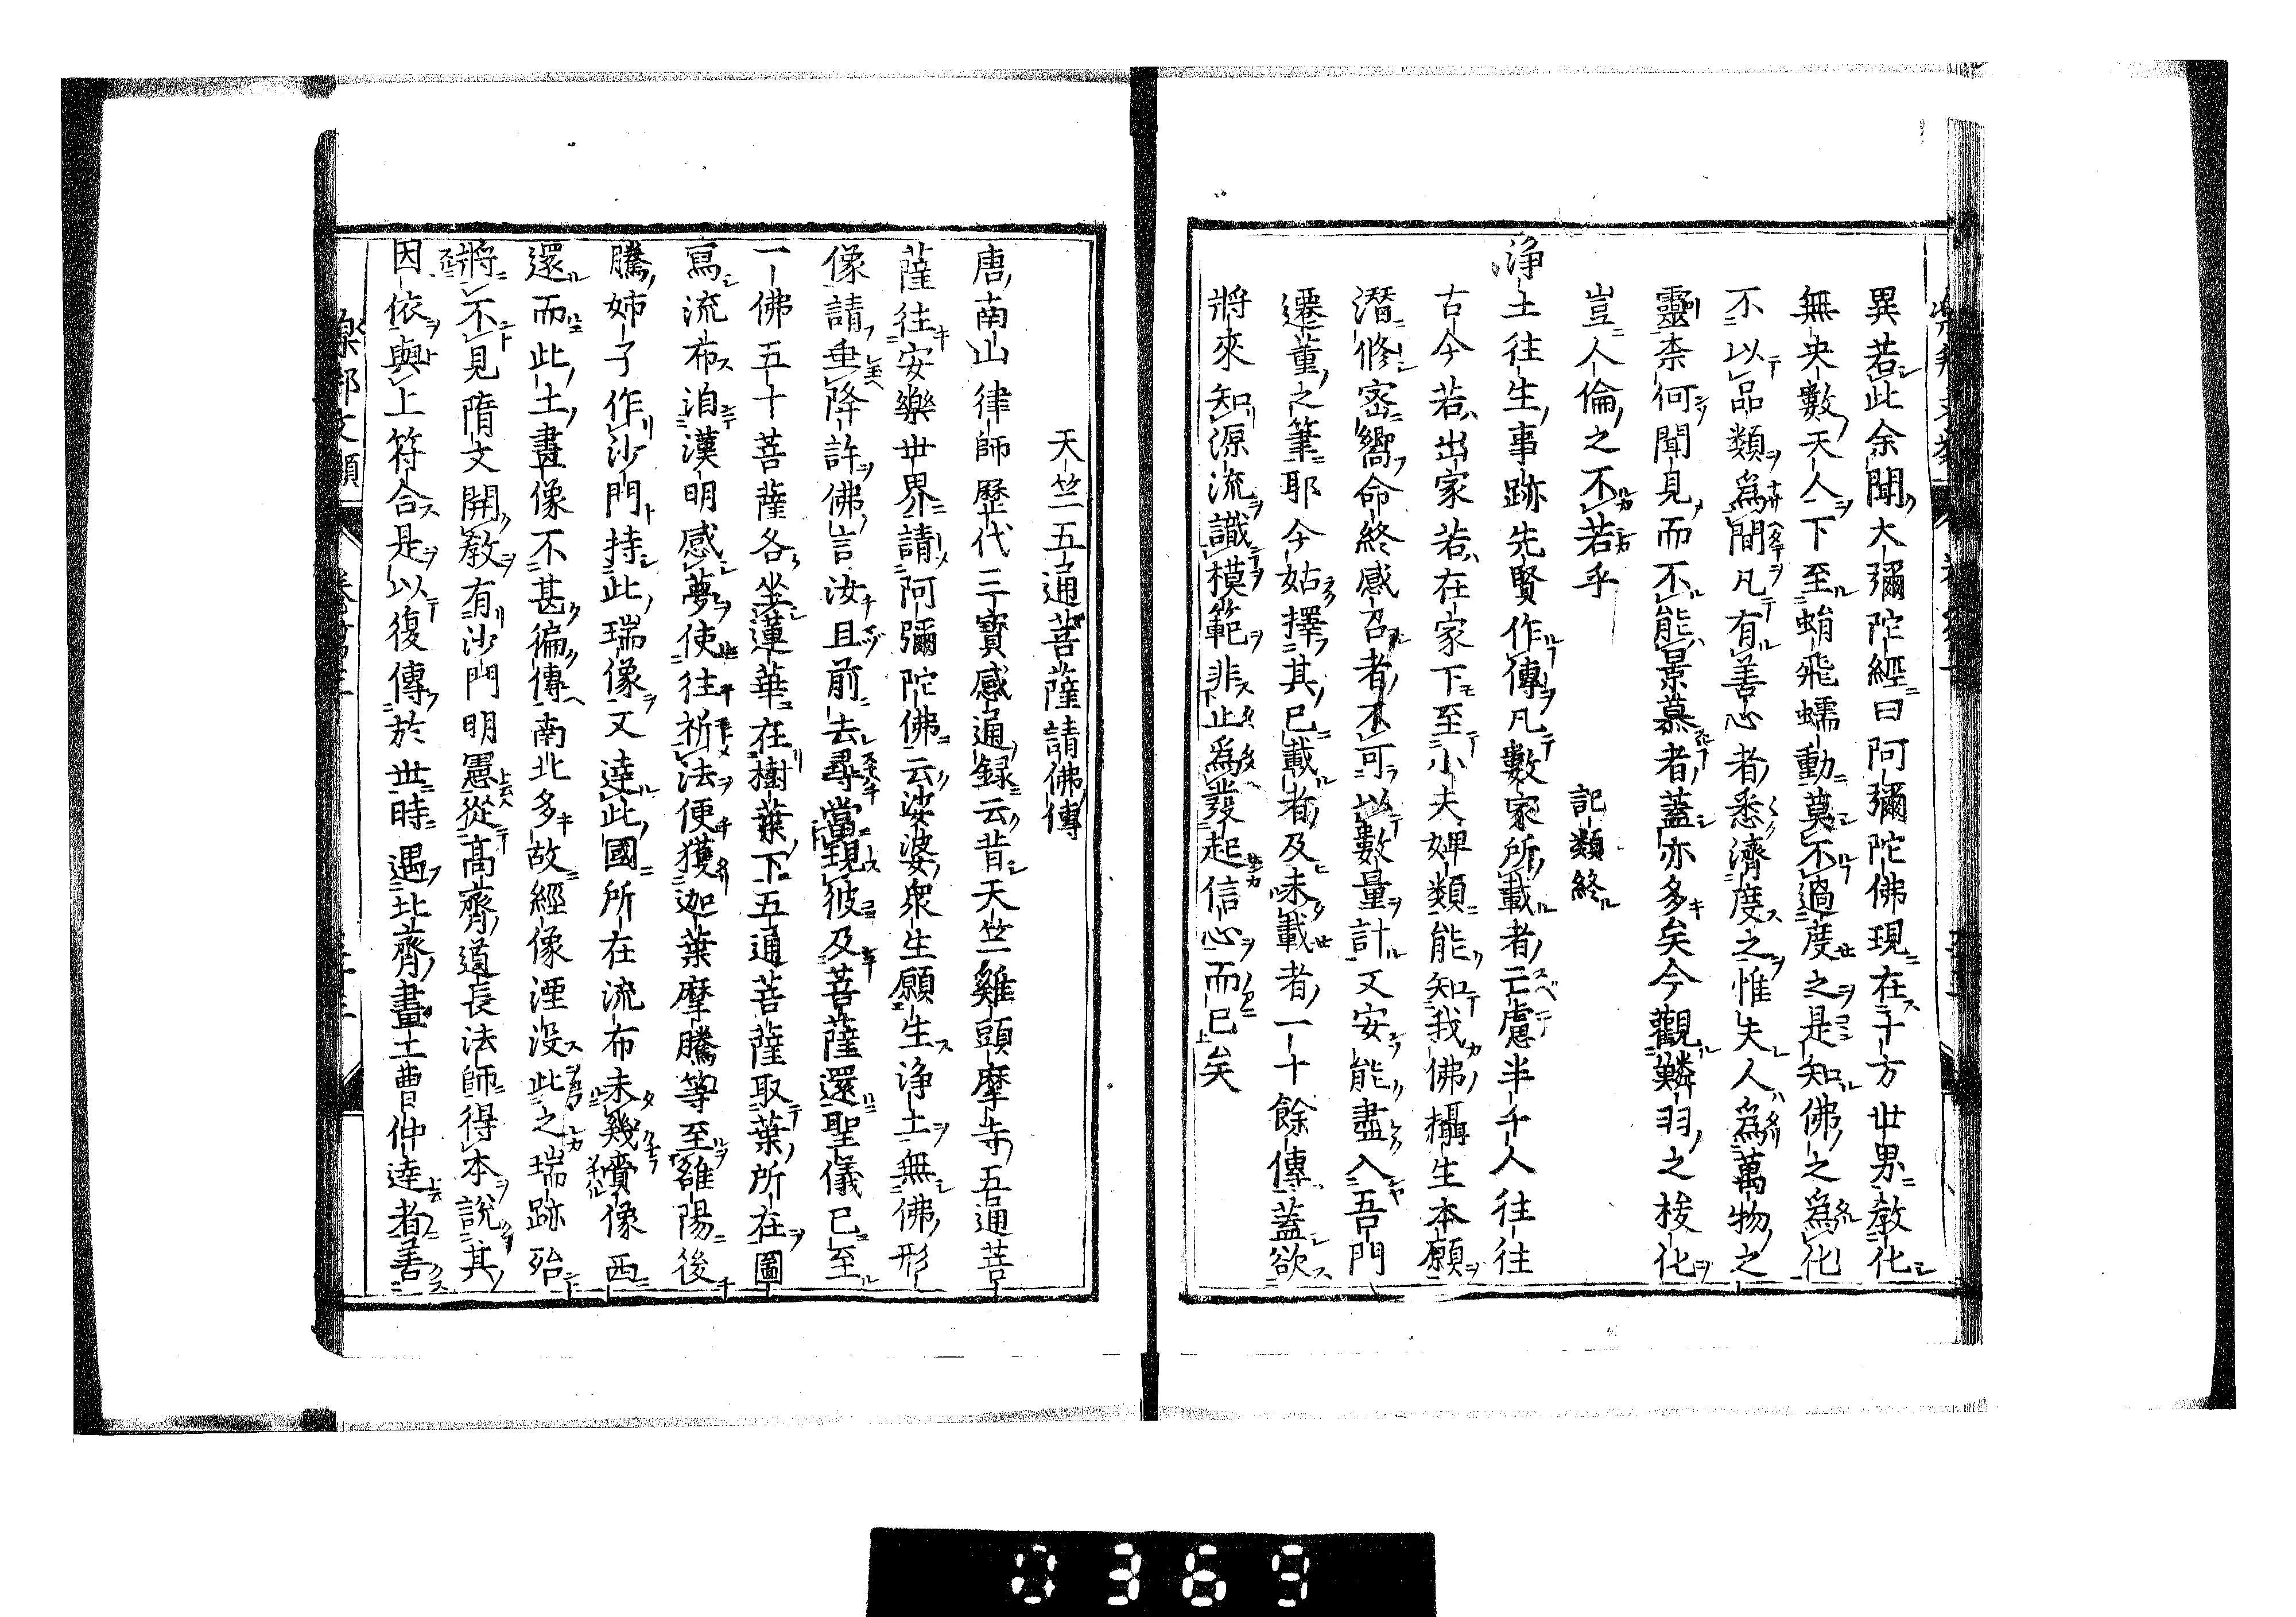 異若此余聞大彌陀經曰阿彌陀佛現在十方世界教化
無央數天人下至蜎飛蠕動莫不過度之是知佛之爲化
不以品類爲間凡有善心者悉濟度之惟夫人爲萬物之
靈柰何聞見而不能景慕者蓋亦多矣今觀鱗羽之梭化
豈人倫之不若乎
記類終
淨土往生事跡先賢作傳凡數家所載者亡慮半千人往往
古今若出家若在家下至小夫婢類能知我佛攝生本願
潛修密嚮命終感召者不可以數量計又安能盡入吾門
遷董之筆耶今姑擇其已載者及未載者一十餘傳蓋欲
將來知源流識模範非止爲發起信心而已矣
天竺五通菩薩請佛傳
唐南山律師歷代三寶感通録云昔天竺雞頭摩寺五通菩
薩往安樂世界請阿彌陀佛云娑婆衆生願生淨土無佛形
像請垂降許佛言汝且前去尋當現彼及菩薩還聖儀已至
一佛五十菩薩各坐蓮華在樹葉下五通菩薩取葉所在圖
寫流布洎漢明感夢使往祈法便獲迦葉摩騰等至雒陽後
騰姉子作沙門持此瑞像又達此國所在流布未幾賫像西
還而此土畫像不甚徧傳南北多故經像湮没此之瑞跡殆
將不見隋文開教有沙門明憲從高齊道長法師得本說其
因依與上符合是以復傳於世時遇北齊畫工曹仲達者善
樂邦文類
卷第三